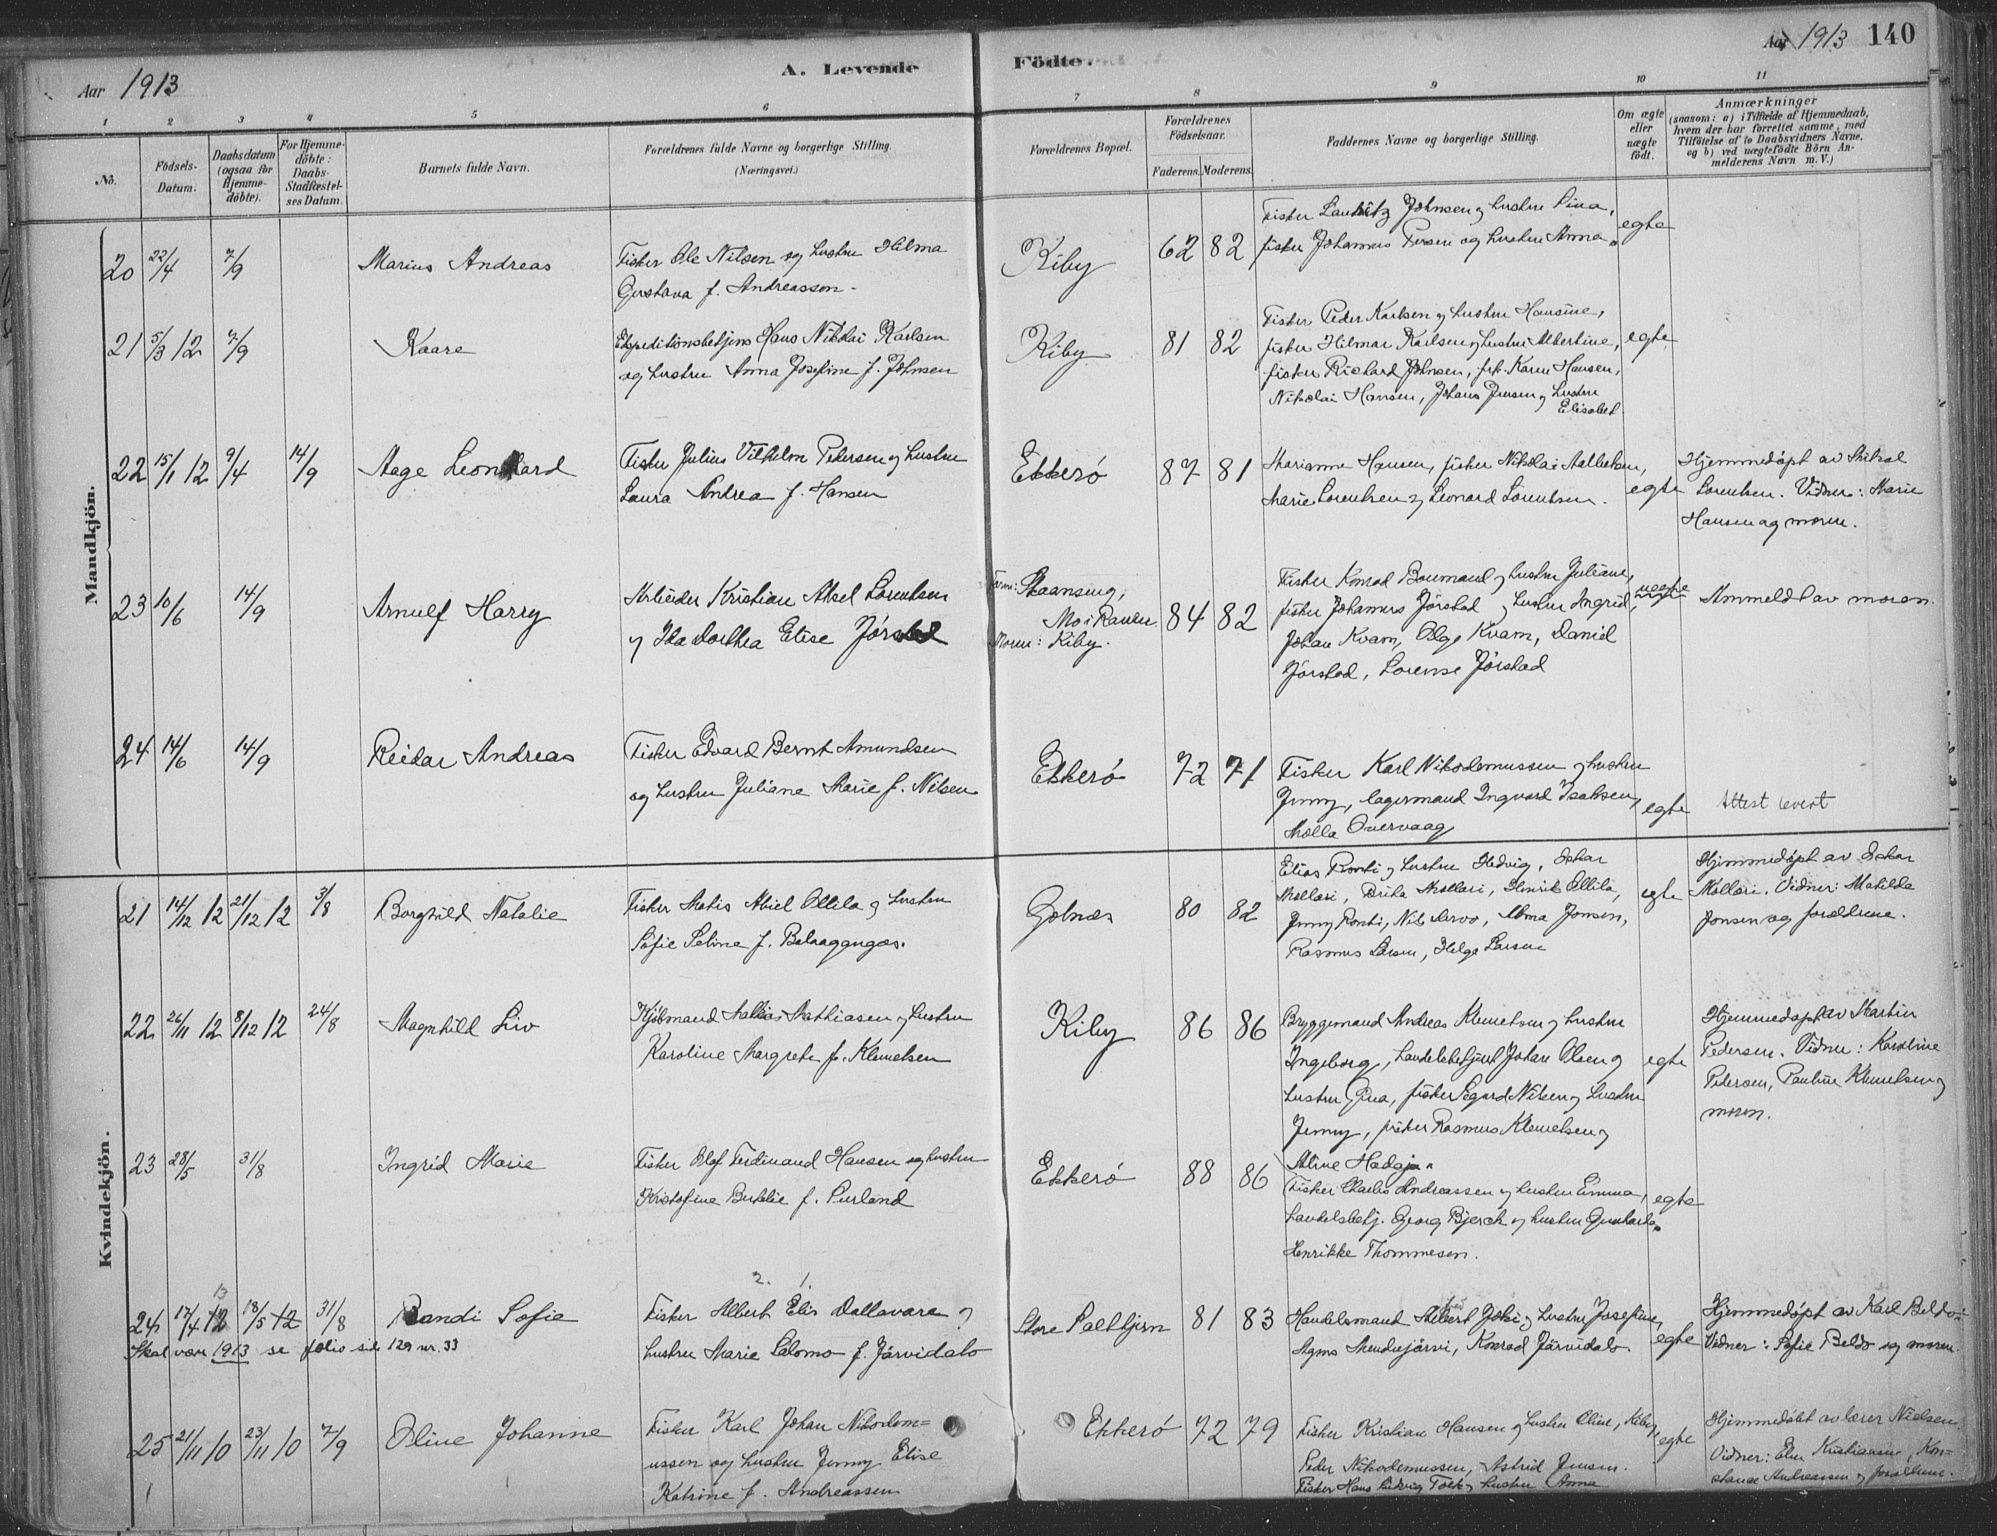 Aar 1913
A. Levende
Födte.
Aar 1913 140
1 2 3 4 5 6 7 8 9 10 11
No.
Födsels-
Datum.
Daabsdatum
(ogsaa for
Hjemme-
döbte).
For Hjemme-
döbte:
Daabs-
Stadfæstel-
ses Datum.
Barnets fulde Navn.
Forældrenes fulde Navne og borgerlige Stilling.
(Næringsvei.)
Forældrenes Bopæl.
Forældrenes
Födselsaar.
Faderens. Moderens.
Faddernes Navne og borgerlige Stilling.
Om ægte
eller
uægte
födt.
Anmærkninger
(saasom: a) i Tilfælde af Hjemmedaab,
hvem der har forrettet samme, med
Tilföielse af to Daabsvidners Navne,
og b) ved uægtefödte Börn An-
melderens Navn m. V.)
Mandkjön.
20 22/4 7/9 Marius Andreas
Fisker Ole Nilsen og hustru Hilma
Gustava f. Andreasson.
Kiby 62 82
Fisker Lauritz Johnsen og hustru Lina,
fisker Johannes Persen og hustru Anna.
egte
21 5/3 12 7/9 Kaare
Ekspeditionsbetjent Hans Nikolai Karlsen
og hustru Anna Josefine f. Johnsen
Kiby 81 82
Fisker Peder Karlsen og hustru Hansine,
fisker Hilmar Karlsen og hustru Albertine,
fisker Rickard Johnsen, frk. Karen Hansen,
Nikolai Hansen, Johans Jensen og hustru
Elisabet.
egte
22 15/1 12 9/4 14/9 Aage Leonhard
Fisker Julius Vilhelm Petersen og hustru
Laura Andrea f. Hansen
Ekkerö 87 81
Marianne Hansen, fisker Nikolai
Marie Lorentsen og Leonard Lorentsen.
egte
Hjemmedøpt av Mikal
Lorentsen. Vidner: Marie
Hansen og moren.
23 10/6 14/9 Arnulf Harry
Arbeider Kristian Aksel Lorentsen
og Ida Dorthea Elise Jørstad
Faren:
Mo i Ranen
Moren: Kiby.
84 82
Fisker Konrad Baumand og hustru Juliane,
fisker Johannes Jørstad og hustru Ingrid,
Johan Kvam, Olga Kvam, Daniel
Jørstad, Lorense Jørstad
uegte
Anmeldt av moren.
24 14/6 14/9 Reidar Andreas
Fisker Edvard Bernt Amundsen
og hustru Juliane Marie f. Nilsen
Ekkerö 72 71
Fisker Karl Nikodemussen og hustru
Jenny, lagermand Ingvard Isaksen,
Molla Overvaag
egte
Attest levert
Kvindekjön.
21 14/12 12 21/12 12 3/8 Borghild Natalie
Fisker Matis Abiel Ollila og hustru
Sofie Seline f. Balaaggangas.
Golnes 80 82
Elias Ronti og hustru Hedvig, Oskar
Mollari, Brita Mollari, Henrik Ollila,
Jenny Ronti, Nils Arvo, Alma Jonsen,
Rasmus Larsen, Helga Larsen
egte
Hjemmedøpt av Oskar
Mollari. Vidner: Matilda
Jonsen og forældrene.
22 26/11 12 8/12 12 24/8 Magnhild Liv
Kjøbmand Mathias Mathiasen og hustru
Karoline Margrete f. Klemetsen
Kiby 86 86
Bryggemand Andreas Klemetsen og hustru
Ingeborg, handelsbetjent Johan Olsen og
hustru Gina, fisker Segurd Nilsen og hustru
Jenny, fisker Rasmus Klemetsen og
Aline Hadgja.
egte
Hjemmedøpt av Martin
Pedersen. Vidner: Karoline
Petersen, Pauline Klemetsen og
moren.
23 28/5 31/8 Ingrid Marie
Fisker Olaf Ferdinand Hansen og hustru
Kristofine Bertelie f. Lurland
Ekkerö 88 86
Fisker Charles Andreassen og hustru Emma,
handelsbetj. Georg Bjerck og hustru
Henrikke Thommesen.
egte
24 17/4 12 13 18/5 12 31/8 Randi Sofie
Skal være 1913 se folio side 129 nr. 33
2. 1.
Fisker Albert Elis Dallavara og
hustru Marie Salomo f. Järvidalo
Store Saltbjern 81 83
Handelsmand Albert Joki og hustru Josefine,
Agnes Mendujärvi, Konrad Järvidalo.
egte
Hjemmedøpt av Karl Beldo.
Vidner: Sofie Beldo og moren.
25 21/11 10 23/11 10 7/9 Oline Johanne
Fisker Karl Johan Nikodem=
ussen og hustru Jenny Elise
Katrine f. Andreassen
Ekkerö 72 79
Fisker Kristian Hansen og hustru Oline, Kiby,
Peder Nikodemussen, Astrid Jensen.
Fisker Hans Ludvig Falk og hustru Anna
egte
Hjemmedøbt av lærer Nielsen.
Vidner: Elen Kristiansen, Kon=
stance Andreassen og forældrene.